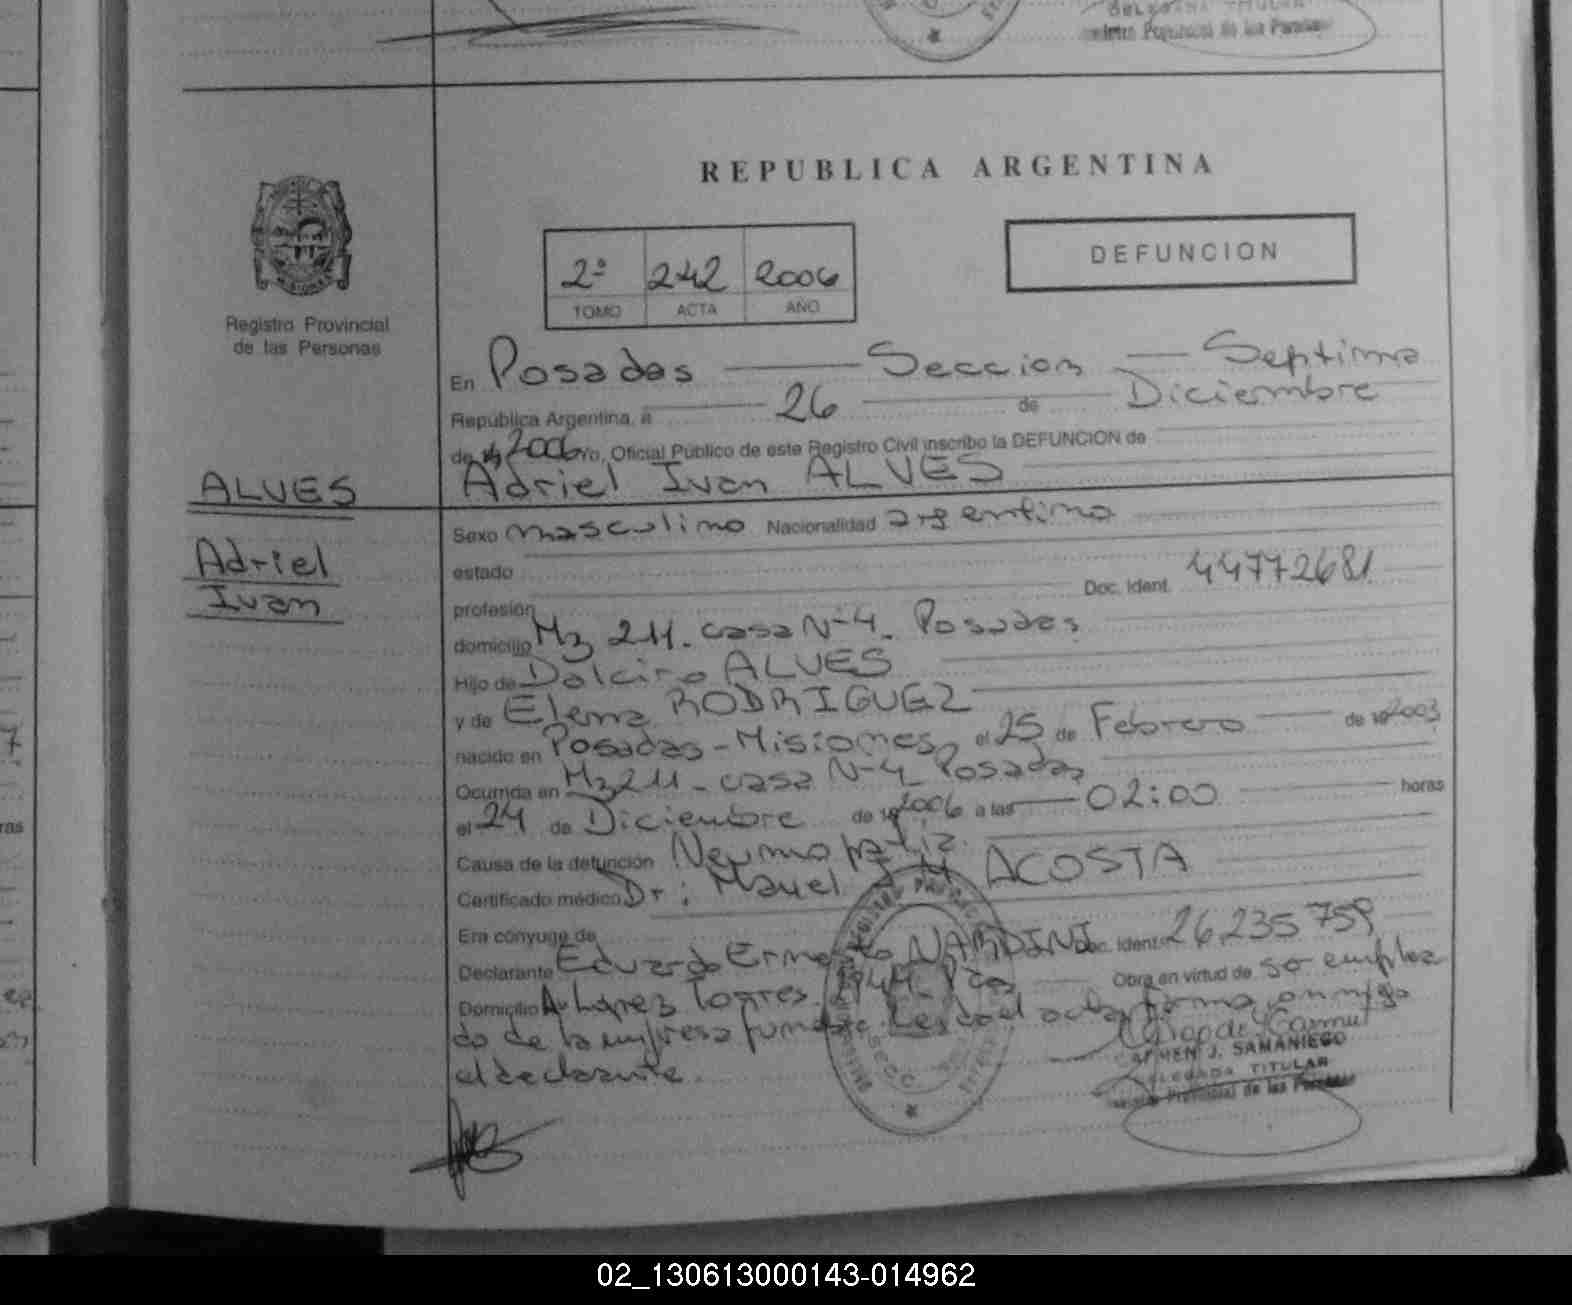 DELEGADA TITULAR
Registro Provincial de las Personas
REPUBLICA ARGENTINA
2º 242 2006
TOMO ACTA AÑO
DEFUNCION
Registro Provincial
de las Personas
En Posadas Seccion Septima
República Argentina, a 26 de Diciembre
de 2006 Yo, Oficial Público de este Registro Civil inscribo la DEFUNCION de
Adriel Ivan ALVES
ALVES
Adriel
Ivan
Sexo masculino Nacionalidad argentina
estado
Doc. Ident. 44772681
profesión
domicilio Mz 211. casa Nº 4. Posadas
Hijo de Dolciro ALVES
y de Elena RODRIGUEZ
nacido en Posadas - Misiones, el 25 de Febrero de 2003
Ocurrida en Mz 211 - casa Nº 4 Posadas
el 24 de Diciembre de 2006 a las 02:00 horas
Causa de la defunción Neumopatia.
Certificado médico Dr: Manuel J M ACOSTA
Era conyuge de
Declarante Eduardo Ernesto NARDINI Doc. Ident. 26.235759
Domicilio Av Lopez Torres. Pdas Obra en virtud de ser emplea
do de la empresa funebre. Leida el acta firma conmigo
el declarante.
CARMEN J. SAMANIEGO
DELEGADA TITULAR
Registro Provincial de las Personas
02_130613000143-014962